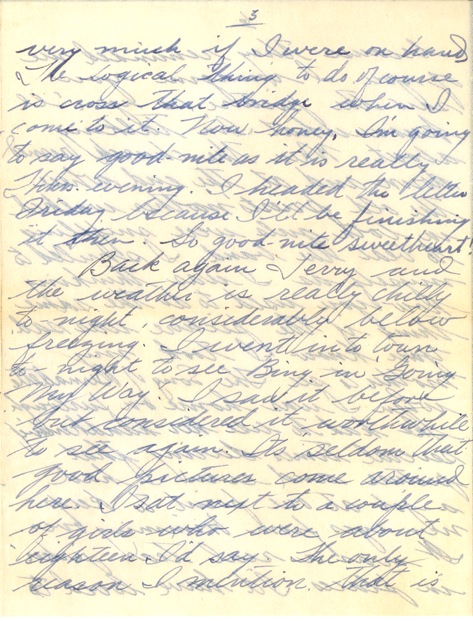 3
very much if I were on hand
The logical thing to do of course
is cross that bridge when I
come to it. Now honey, I'm going
to say good-nite as it is really
Thur. evening. I headed the letter
Friday because I'll be finishing
it then. So good-nite sweetheart!
Back again Jerry and
the weather is really chilly
to night, considerably below
freezing. I went into town
to-night to see Bing in "Going
My Way". I saw it before
but considered it worthwhile
to see again. Its seldom that
good pictures come around
here. I sat next to a couple
of girls who were about
eighteen I'd say. The only
reason I mention that is